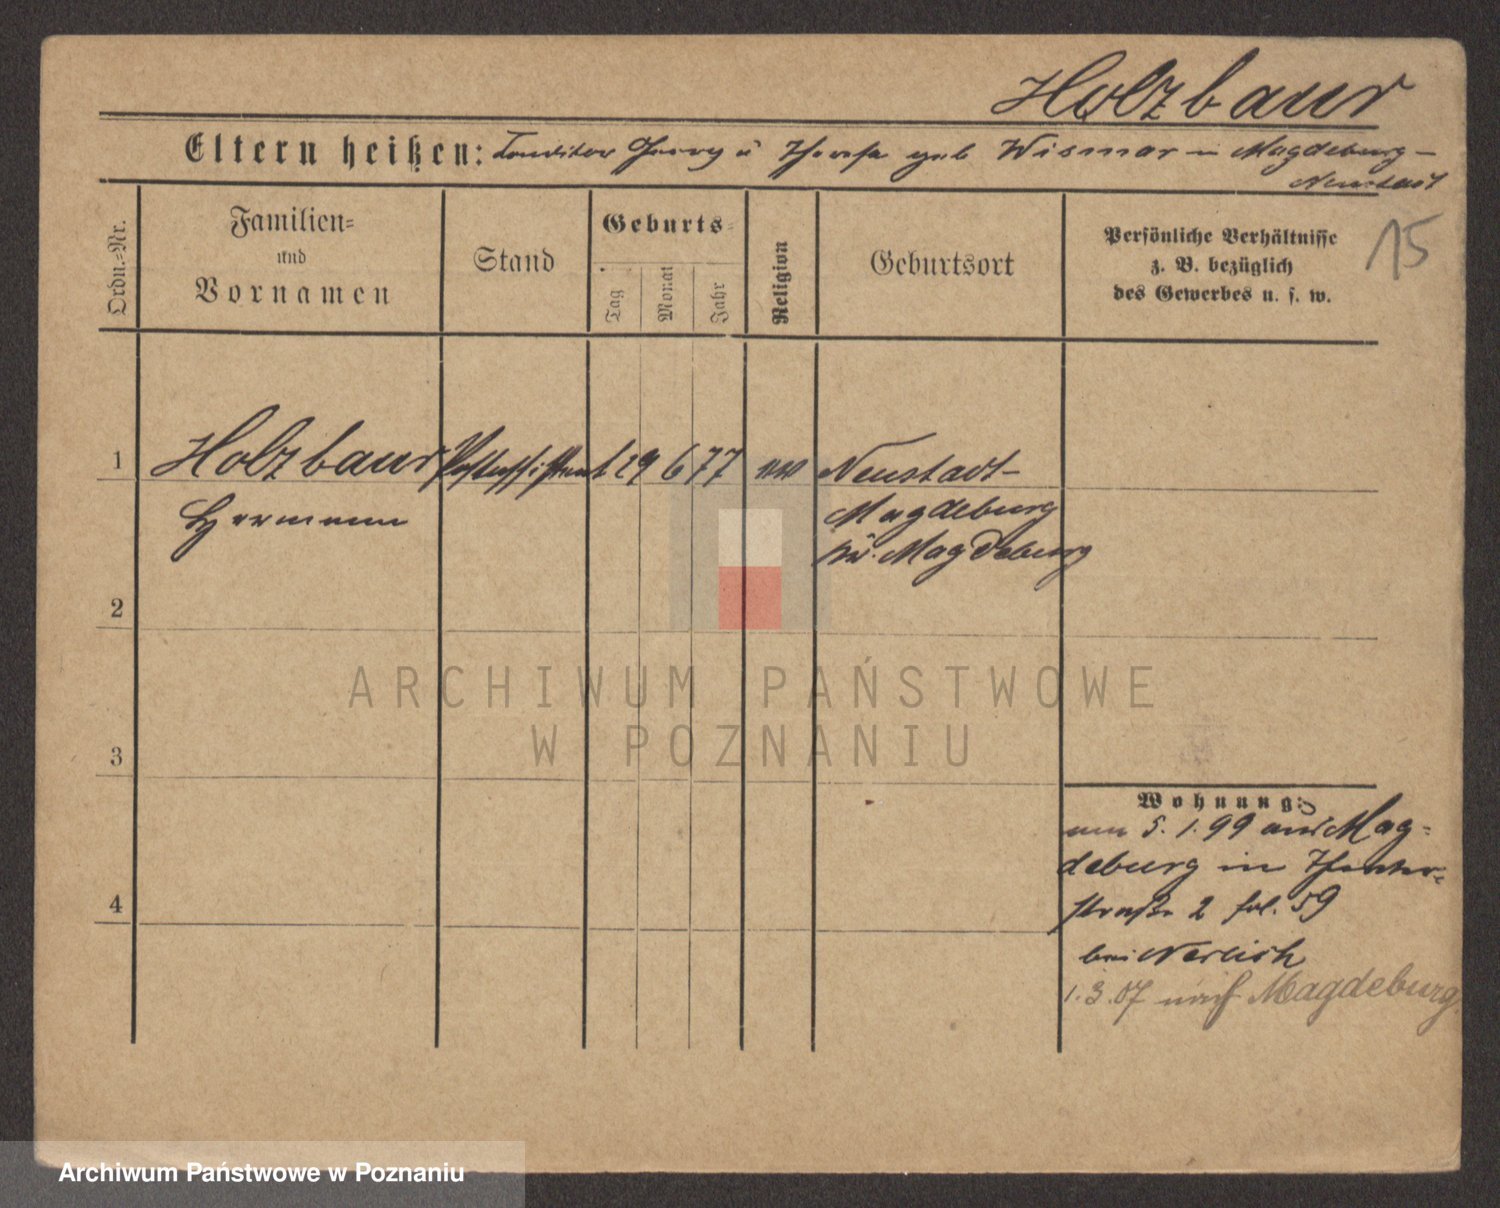 Holzbaur
Eltern heißen: Conditor Georg u Therese geb Wismar in Magdeburg-
Neustadt
15
Ordn.-Nr.
Familien-
und
Vornamen
Stand
Geburts-
Tag
Monat
Jahr
Religion
Geburtsort
Persönliche Verhältnisse
z. B. bezüglich
des Gewerbes u. s. w.
1 Holzbaur Postassistent 29 6 77 ev Neustadt-
Hermann Magdeburg
Kr. Magdeburg
2
3
4
Wohnung:
am 5. 1. 99 aus Mag-
deburg in Theater-
straße 2 fol. 59
bei Nerlich
1. 3. 07 nach Magdeburg
ARCHIWUM PAŃSTWOWE
W POZNANIU
Archiwum Państwowe w Poznaniu